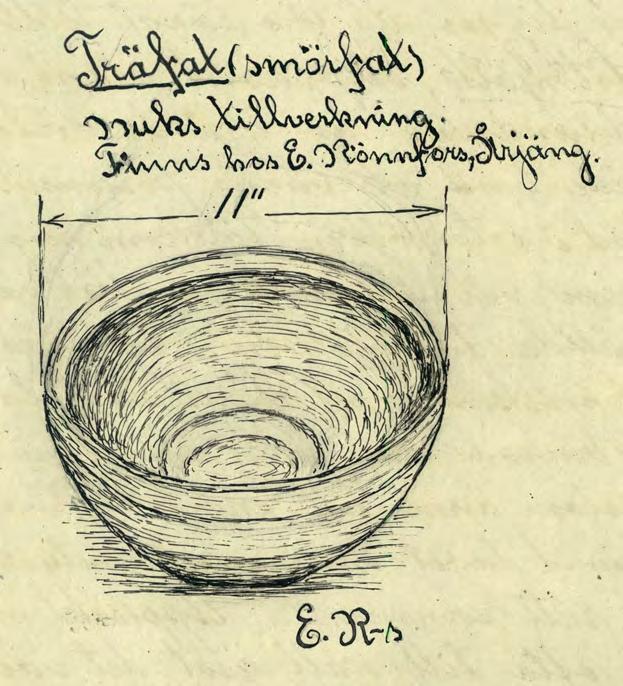 Träfat (smörfat)
nuks tillverkning.
Finns hos E. Rönnfors, Årjäng.
11"
E. R-s